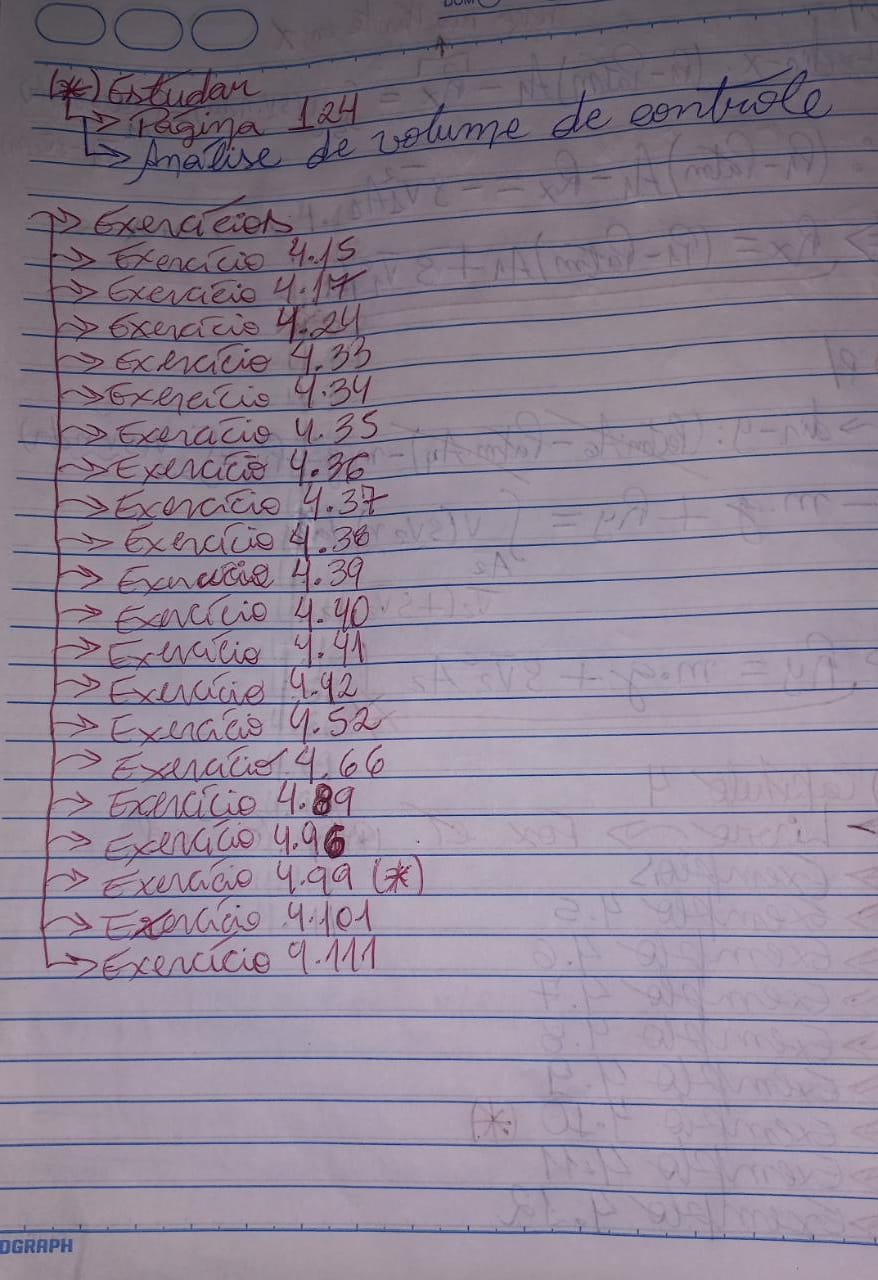 (*) Estudar
→ Página 124
→ Análise de volume de controle
→ Exercícios
→ Exercício 4.15
→ Exercício 4.17
→ Exercício 4.24
→ Exercício 4.33
→ Exercício 4.34
→ Exercício 4.35
→ Exercício 4.36
→ Exercício 4.37
→ Exercício 4.38
→ Exercício 4.39
→ Exercício 4.40
→ Exercício 4.41
→ Exercício 4.42
→ Exercício 4.52
→ Exercício 4.66
→ Exercício 4.89
→ Exercício 4.96
→ Exercício 4.99 (*)
→ Exercício 4.101
→ Exercício 4.111
OGRAPH